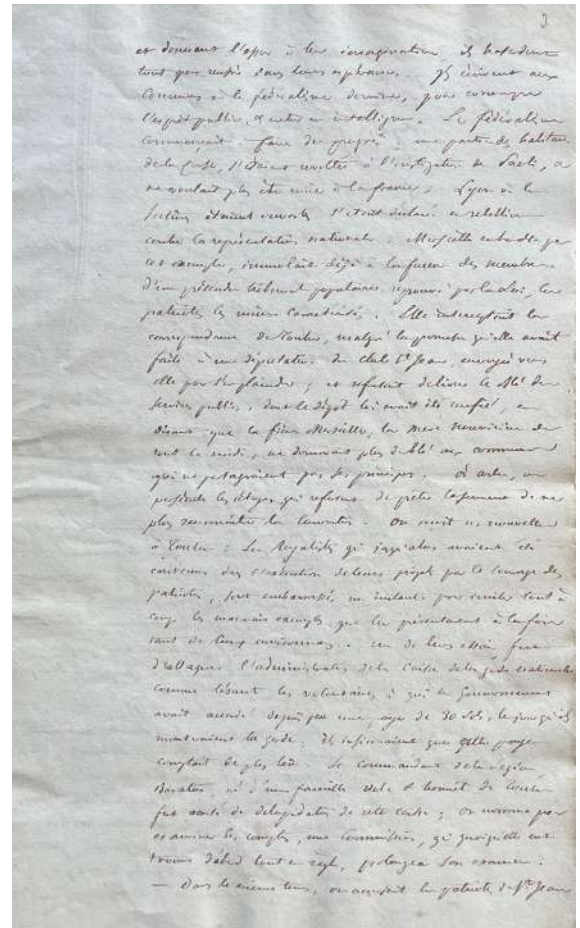 3
et donnant l'essor à leur imagination ils
tout pour dans leurs espérances. Ils écrivent aux
communes
l'esprit public, & entrer en intelligence. Le fédéralisme
commençait à faire des progrès : une partie des habitans
de la Corse, s'étaient révoltés à l'instigation de Paoli, &
ne voulait plus être unie à la france. Lyon où les
Sections étaient s'était déclaré en rébellion
contre la représentation nationale. Marseille par
cet exemple, immolait déjà à la fureur des membres
d'un prétendu tribunal populaire, par la Loi, les
patriotes les mieux caractérisés. Elle interceptait la
correspondance de Toulon, malgré la promesse qu'elle avait
faite à une députation du Club St Jean, envoyé vers
elle pour s'en plaindre ; et refusait de livrer le blé du
Service public, dont le dépôt lui avait été confié, en
disant que la fière Marseille, la mère nourricière de
tout le midi, ne donnerait plus de blé aux communes
qui ne partageraient pas ses principes. à arles, on
les citoyens qui refusent de prêter le serment de ne
plus reconnaître la convention. On reçoit ces nouvelles
à Toulon ; Les Royalistes qui jusqu'alors avaient été
contenus dans l'exécution de leurs projets par le courage des
patriotes, sont embarrassés un instant pour imiter tout à
coup les mauvais exemples que leur présentaient à la fois
tant de lieux environnans. un de leurs essais fut
d'attaquer l'administration de la Caisse de la garde nationale
comme lésant les volontaires à qui le Gouvernement
avait accordé depuis peu une paye de 30 sols, le jour qu'ils
montraient la garde. Ils insinuaient que cette paye
comptait de plus loin. Le commandant de la Légion
né d'une famille riche & honnête de Toulon
fut accusé de dilapidation de cette caisse ; on nomma pour
examiner les comptes, une Commission, qui quoiqu'elle eut
trouvé d'abord tout en règle, prolongea son examen.
— Dans le même tems, on accusait les patriotes de St Jean